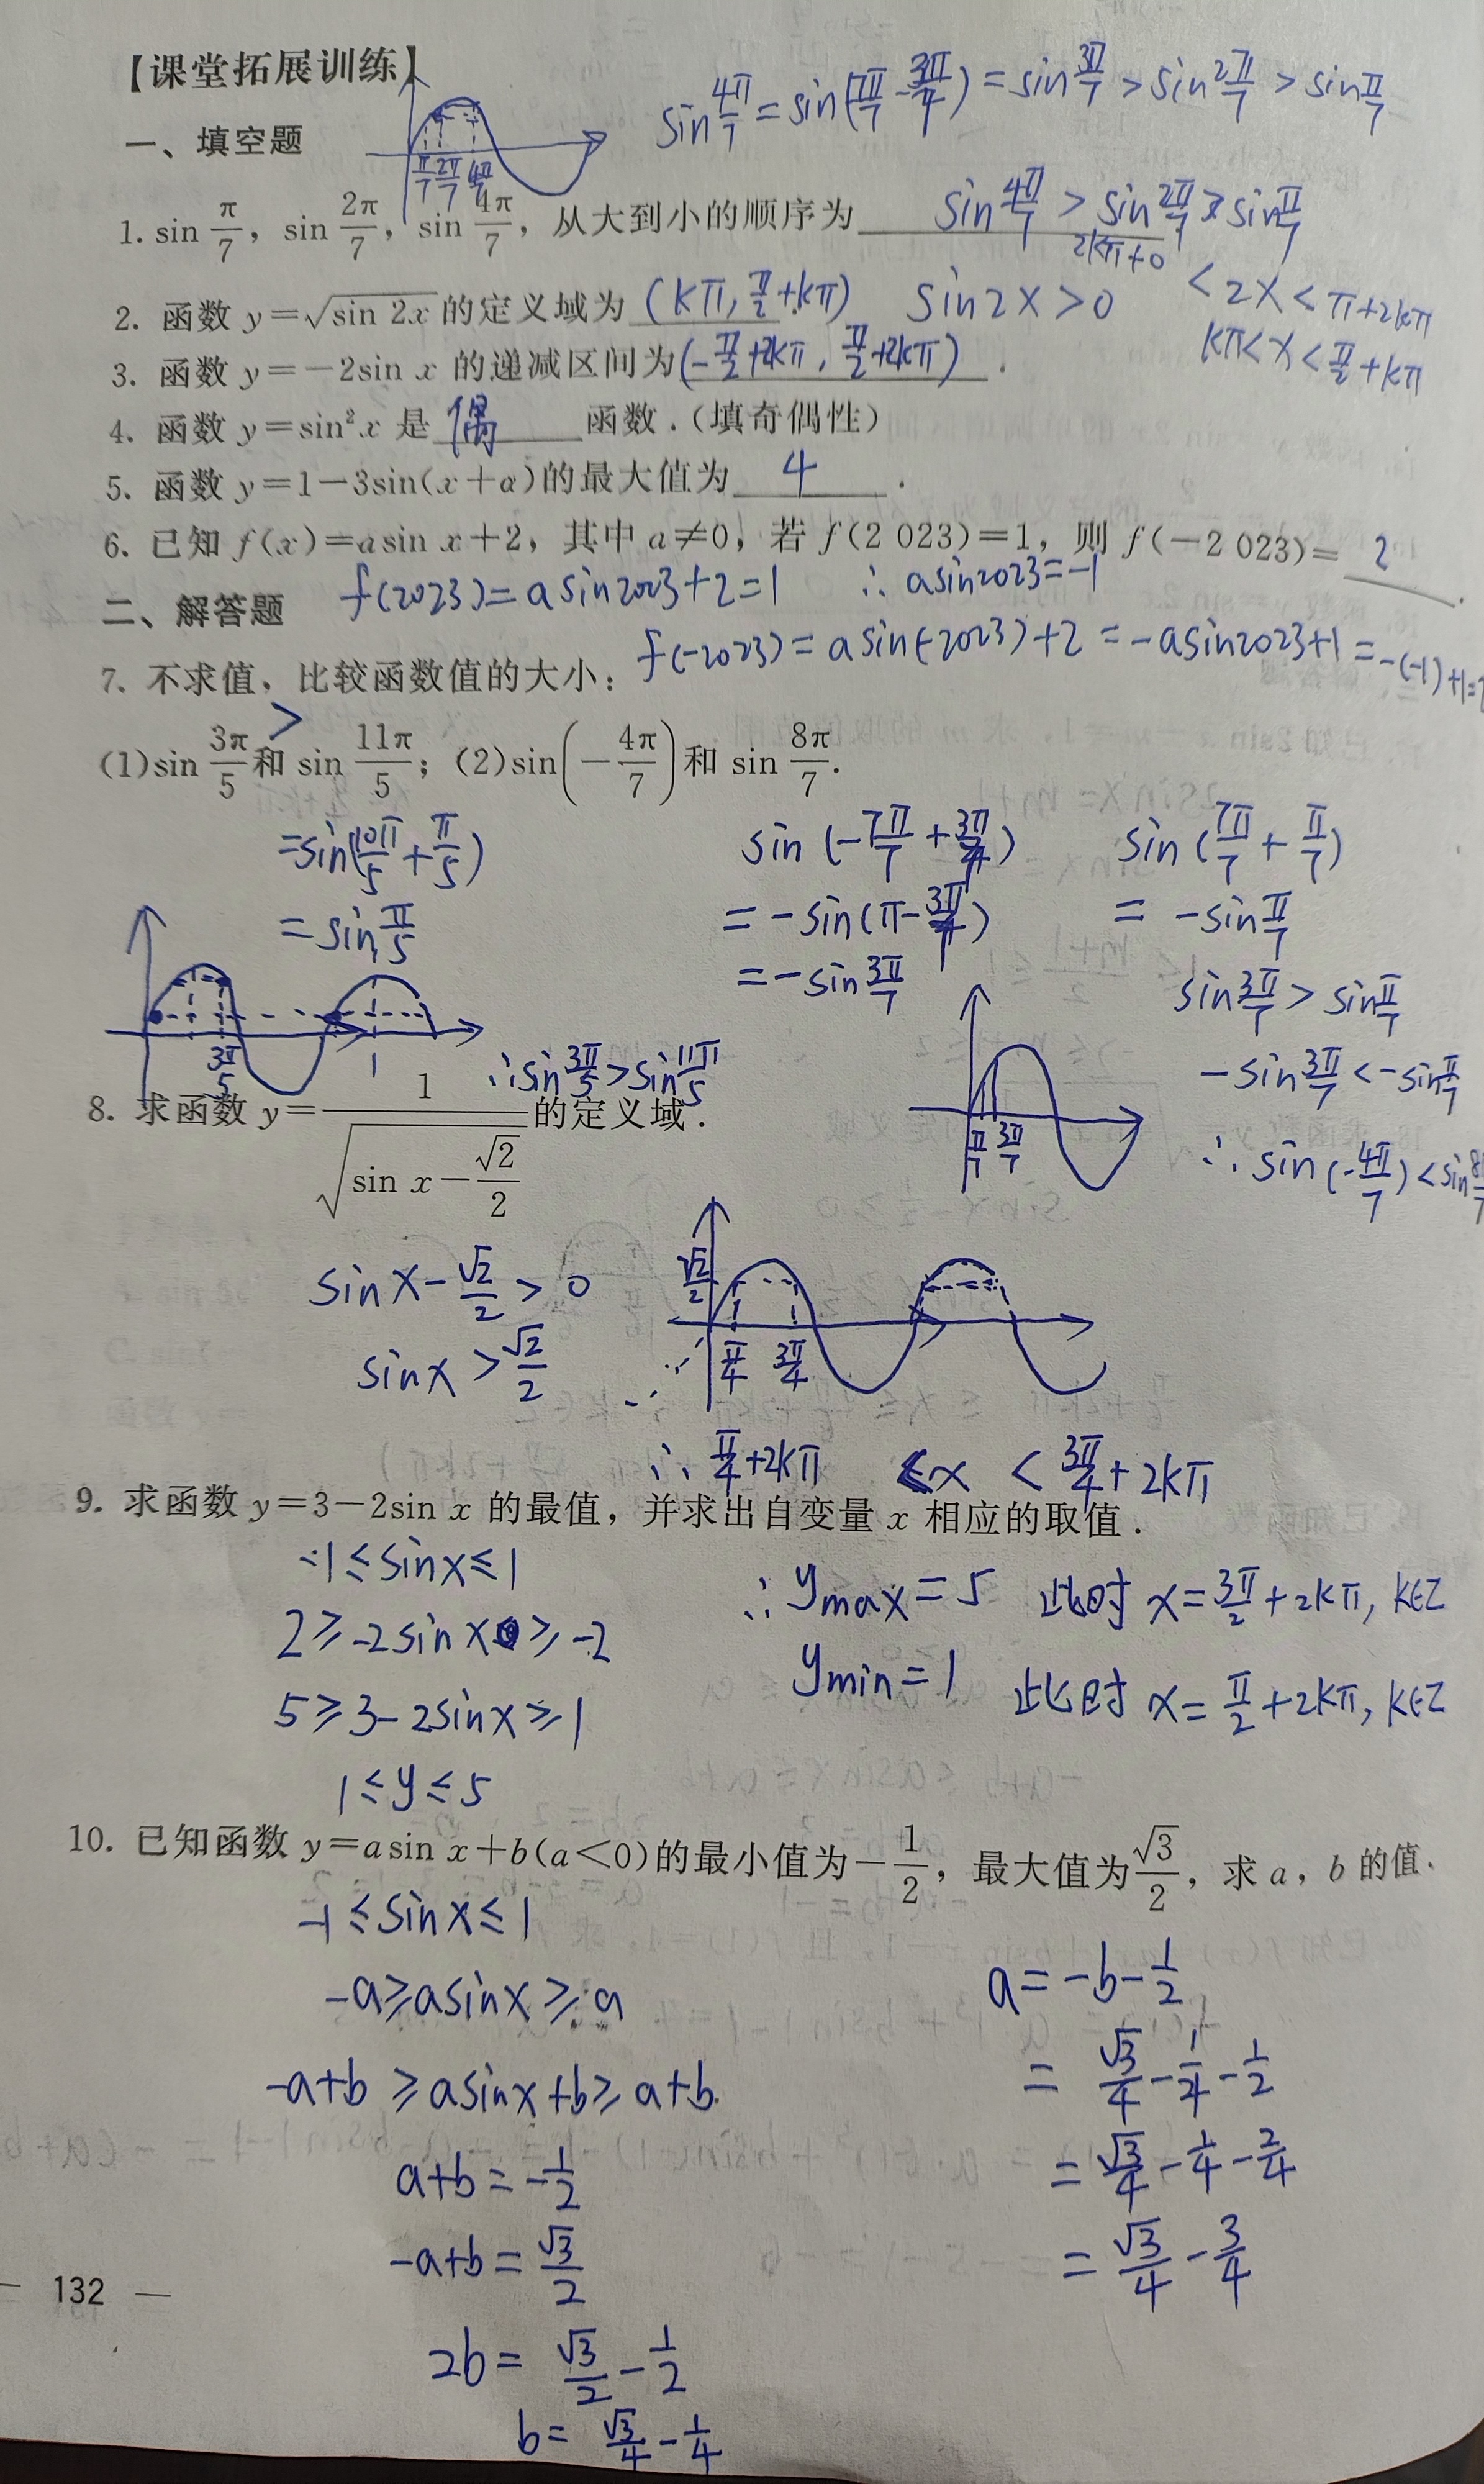 【课堂拓展训练】
sin 4π/7 = sin(7π/7 - 3π/7) = sin 3π/7 > sin 2π/7 > sin π/7
一、填空题
π/7 2π/7 4π/7
1. sin π/7，sin 2π/7，sin 4π/7，从大到小的顺序为 sin 4π/7 > sin 2π/7 > sin π/7
2. 函数 y=√(sin 2x) 的定义域为 (kπ, π/2+kπ). sin2x>0 2kπ+0 <2x<π+2kπ
kπ<x<π/2+kπ
3. 函数 y=-2sin x 的递减区间为 (-π/2+2kπ, π/2+2kπ).
4. 函数 y=sin²x 是 偶 函数.（填奇偶性）
5. 函数 y=1-3sin(x+α)的最大值为 4 .
6. 已知 f(x)=asin x+2，其中 a≠0，若 f(2 023)=1，则 f(-2 023)= 2 .
f(2023)=asin2023+2=1 ∴asin2023=-1
二、解答题
f(-2023)=asin(-2023)+2=-asin2023+1=-(-1)+1=2
7. 不求值，比较函数值的大小：
(1)sin 3π/5 和 > sin 11π/5；(2)sin(-4π/7)和 sin 8π/7.
=sin(10π/5+π/5)
=sin π/5
sin(-7π/7+3π/7)
=-sin(π-3π/7)
=-sin 3π/7
sin(7π/7+π/7)
=-sin π/7
sin 3π/7 > sin π/7
-sin 3π/7 < -sin π/7
∴sin(-4π/7)<sin 8π/7
3π/5 1
∴sin 3π/5 > sin 11π/5
π/7 3π/7
8. 求函数 y=1/√(sin x-√2/2) 的定义域.
sinx-√2/2>0
sinx>√2/2
√2/2 π/4 3π/4
∴π/4+2kπ <x < 3π/4+2kπ
9. 求函数 y=3-2sin x 的最值，并求出自变量 x 相应的取值.
-1≤sinx≤1
2≥-2sinx≥-2
5≥3-2sinx≥1
1≤y≤5
∴ymax=5 此时 x=3π/2+2kπ, k∈Z
ymin=1 此时 x=π/2+2kπ, k∈Z
10. 已知函数 y=asin x+b(a<0)的最小值为-1/2，最大值为√3/2，求 a，b 的值.
-1≤sinx≤1
-a≥asinx≥a
-a+b≥asinx+b≥a+b.
a+b=-1/2
-a+b=√3/2
2b=√3/2-1/2
b=√3/4-1/4
a=-b-1/2
=√3/4-1/4-1/2
=√3/4-1/4-2/4
=√3/4-3/4
— 132 —